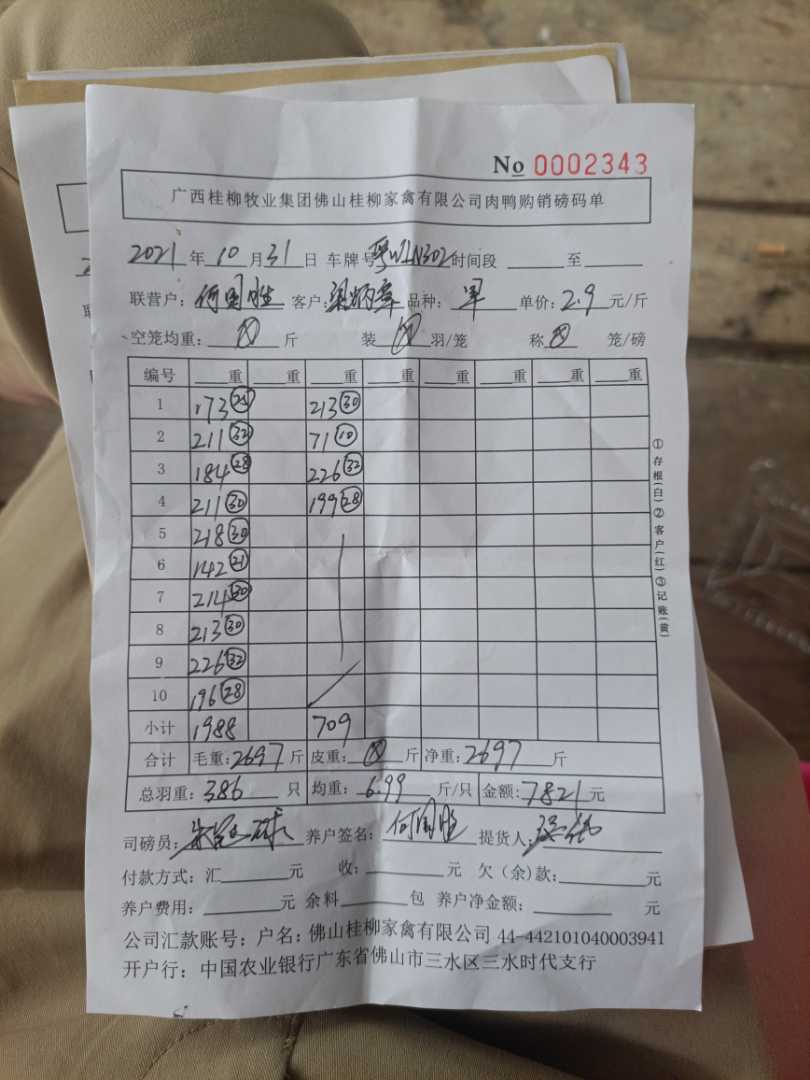 No 0002343
广西桂柳牧业集团佛山桂柳家禽有限公司肉鸭购销磅码单
2021年10月31日 车牌号粤WLN302时间段 至
联营户：何国胜 客户：梁炳章 品种： 单价：2.9元/斤
空笼均重： 斤 装 羽/笼 称 笼/磅
编号 重 重 重 重 重 重 重 重
1 173 213 30
2 211 32 71 10
3 184 28 226 32
4 211 30 199 28
5 218 30
6 142 21
7 214 30
8 213 30
9 226 32
10 196 28
小计 1988 709
合计 毛重：2697斤 皮重： 斤 净重：2697斤
总羽重：386只 均重：6.99斤/只 金额：7821元
司磅员： 养户签名：何国胜 提货人：
付款方式：汇 元 收： 元 欠（余）款： 元
养户费用： 元 余料 包 养户净金额： 元
公司汇款账号：户名：佛山桂柳家禽有限公司 44-442101040003941
开户行：中国农业银行广东省佛山市三水区三水时代支行
①存根(白)②客户(红)③记账(黄)